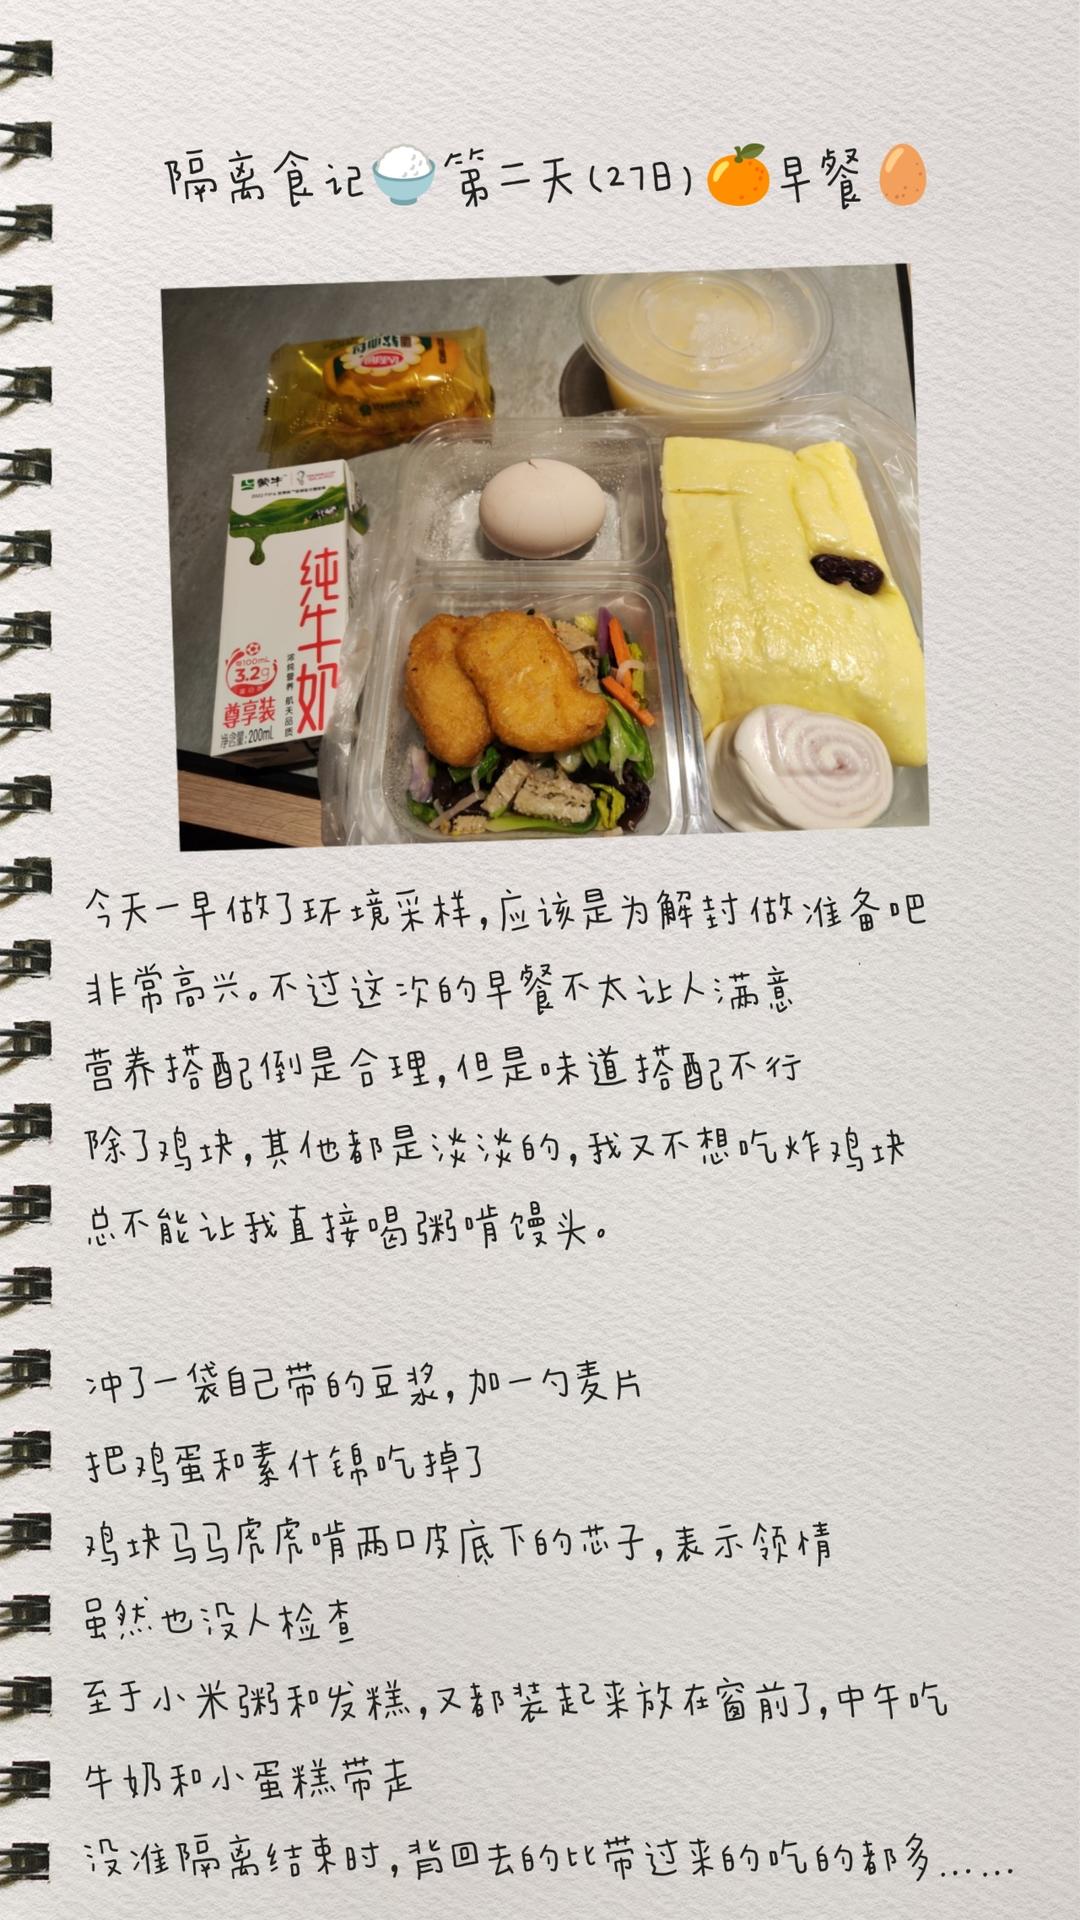 隔离食记🍚第二天(27日)🍊早餐🥚
蒙牛
纯牛奶
浓纯营养 航天品质
每100mL
3.2g
尊享装
净含量:200mL
今天一早做了环境采样,应该是为解封做准备吧
非常高兴。不过这次的早餐不太让人满意
营养搭配倒是合理,但是味道搭配不行
除了鸡块,其他都是淡淡的,我又不想吃炸鸡块
总不能让我直接喝粥啃馒头。
冲了一袋自己带的豆浆,加一勺麦片
把鸡蛋和素什锦吃掉了
鸡块马马虎虎啃两口皮底下的芯子,表示领情
虽然也没人检查
至于小米粥和发糕,又都装起来放在窗前了,中午吃
牛奶和小蛋糕带走
没准隔离结束时,背回去的比带过来的吃的都多……